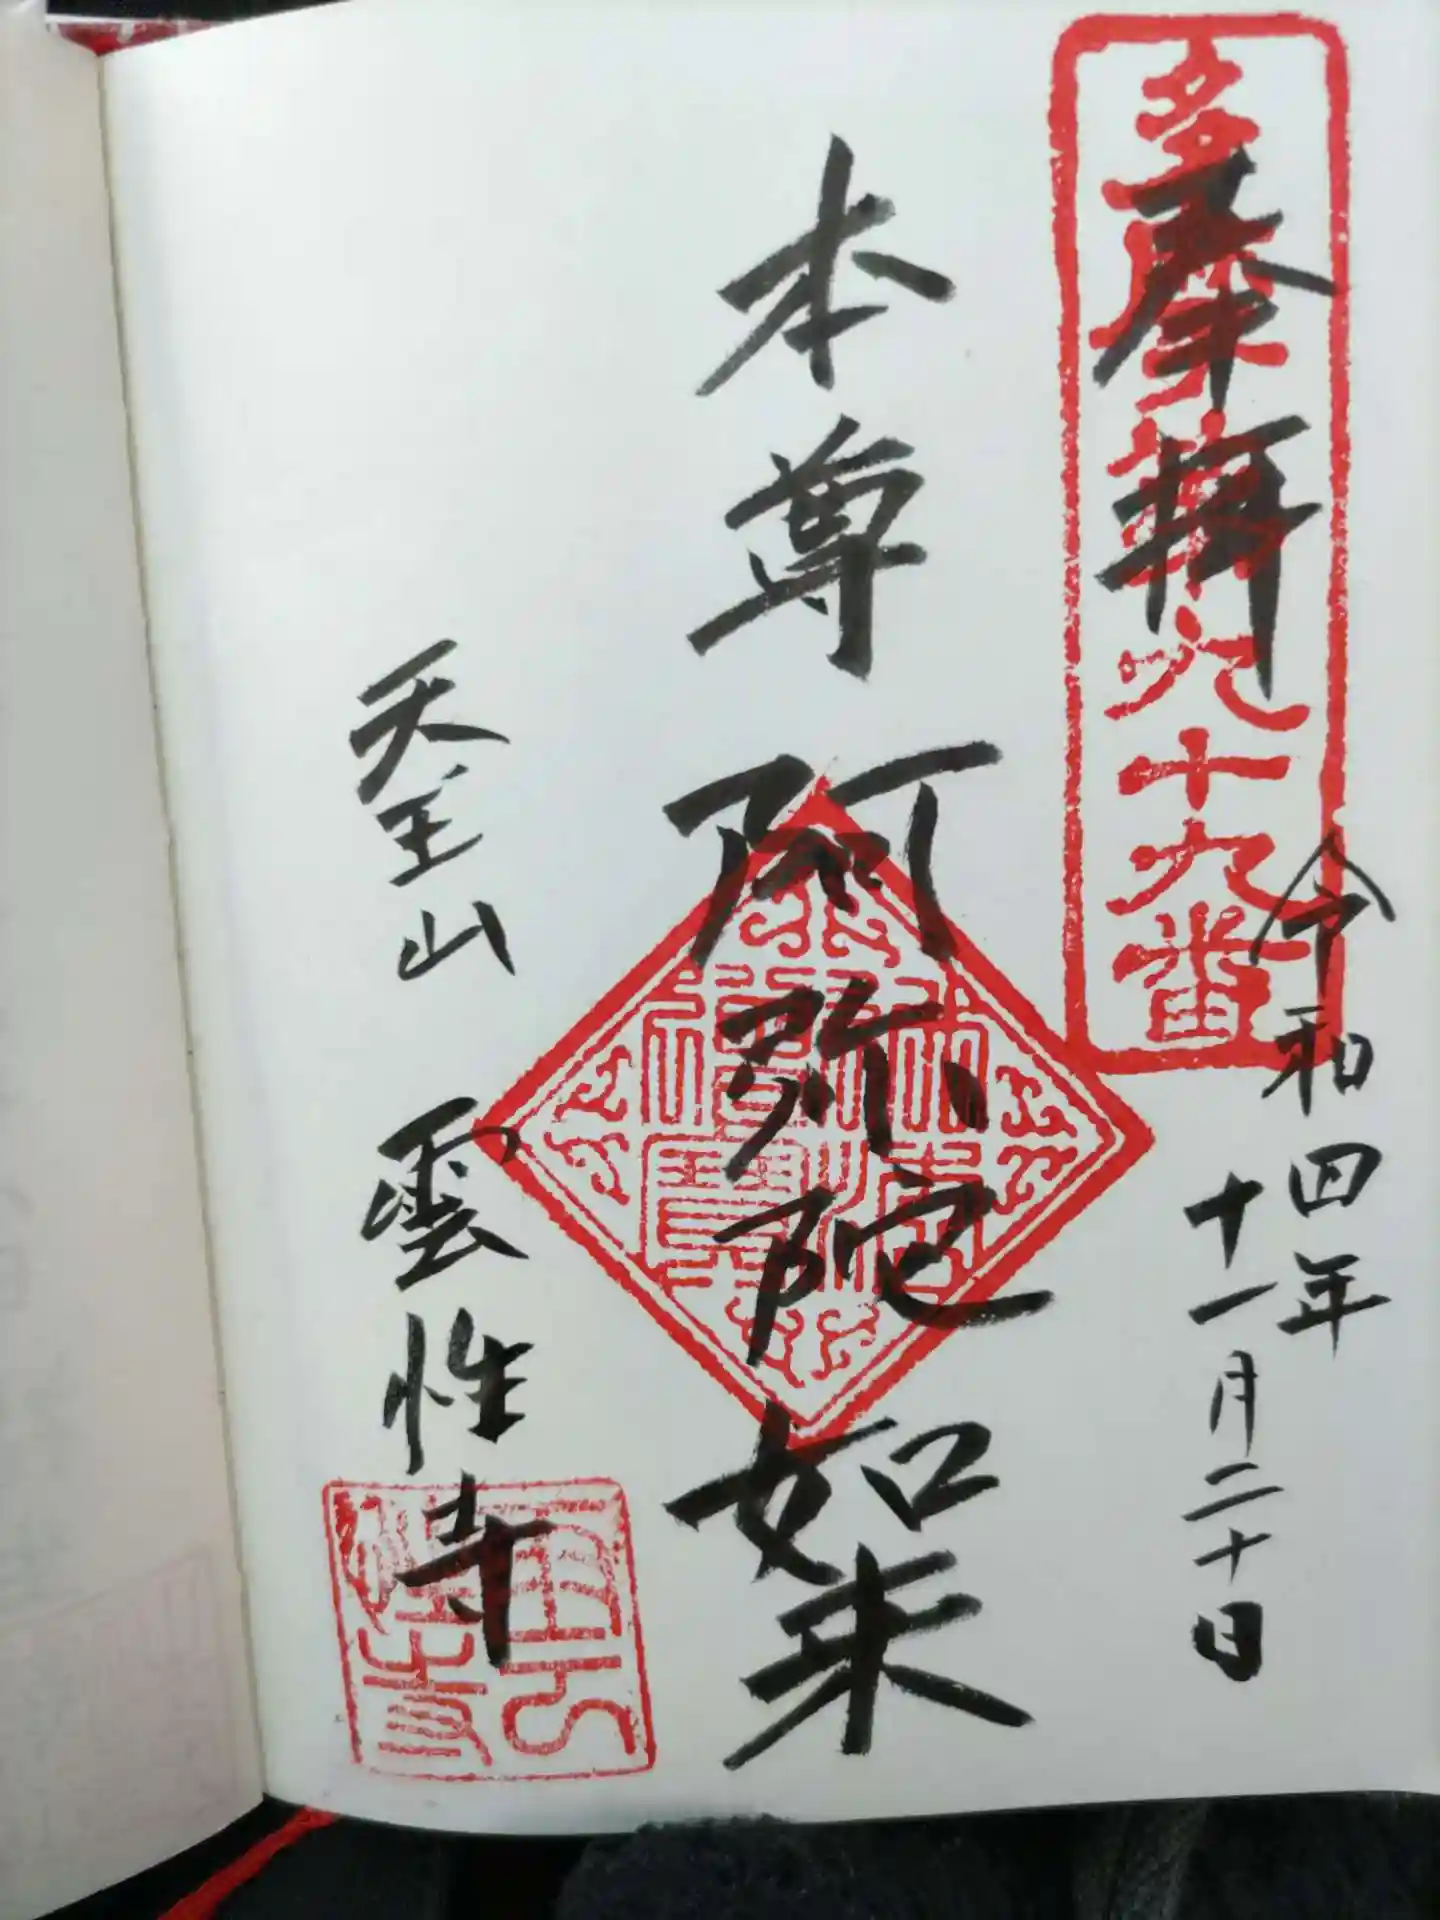 多摩第六十九番
奉拝
令和四年
十一月二十日
本尊 阿弥陀如来
天王山 雲性寺